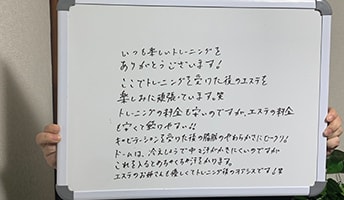 いつも楽しいトレーニングを
ありがとうございます!
ここでトレーニングを受けた後のエステを
楽しみに頑張っています。笑
トレーニングの料金も安いのですが、エステの料金
も安くて軽りやすい!!
キャビテーションを受けた後の脂肪のやわらかさにビックリ!
ドームは、冷えしょうで中々汗がかきにくいのですが
これを入るとめちゃくちゃ汗をかけます。
エステのお姉さんも優しくてトレーニング後のオアシスです!笑